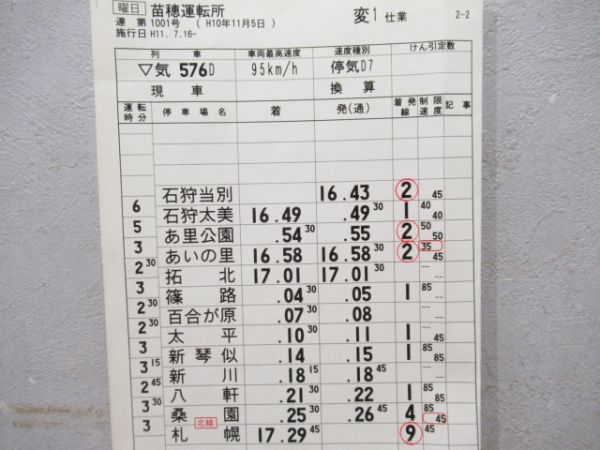 曜日 苗穂運転所 変1 仕業 2-2
運 第 1001号 ( H10年11月5日 )
施行日 H11. 7.16-
列車 車両最高速度 速度種別 けん引定数
▽気 576D 95km/h 停気D7
現車 換算
運転時分 停車場名 着 発(通) 着発線 制限速度 記事
石狩当別 16.43 2 45
6 石狩太美 16.49 .49 30 1 40 40
5 あ里公園 .54 30 .55 2 50 50
3 あいの里 16.58 16.58 30 2 35 45
2 30 拓北 17.01 17.01 30
3 篠路 .04 30 .05 1 85
2 30 百合が原 .07 30 .08
2 30 太平 .10 30 .11 1 45
3 新琴似 .14 .15 1 85 85
3 15 新川 .18 15 .18 45
2 45 八軒 .21 30 .22 1 85
3 30 桑園 北線 .25 30 .26 45 4 85 45
3 札幌 17.29 45 9 45